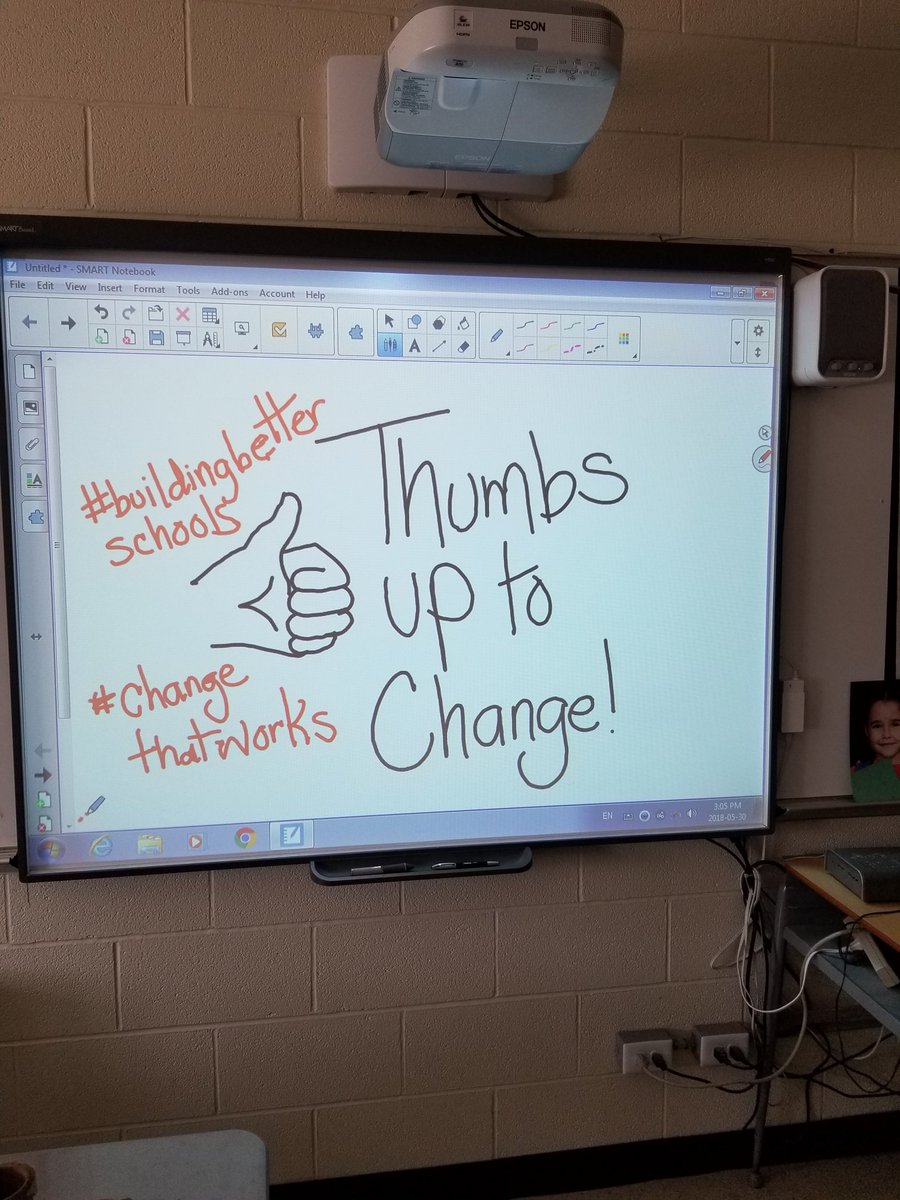 EPSON
EPSON
Untitled * - SMART Notebook
File Edit View Insert Format Tools Add-ons Account Help
#buildingbetter
schools
Thumbs
up to
Change!
#change
thatworks
EN
3:05 PM
2018-05-30